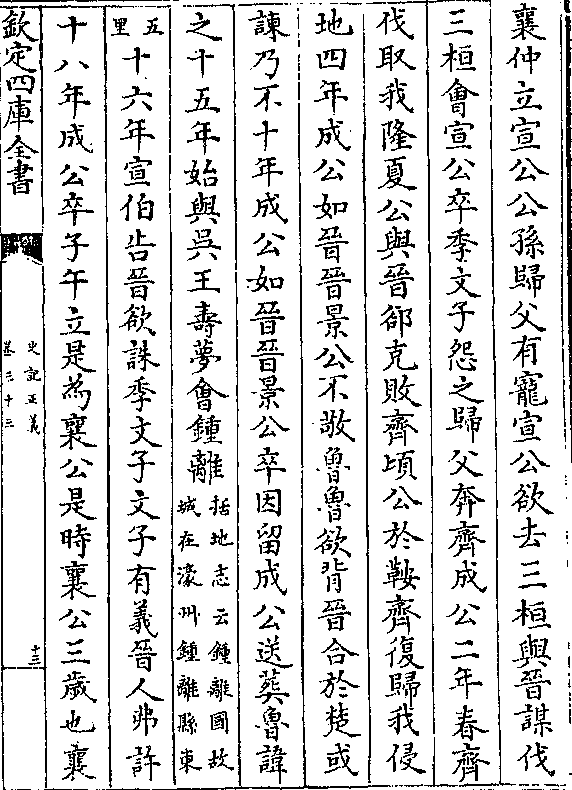 襄仲立宣公公孫歸父有寵宣公欲去三桓與晉謀伐
三桓會宣公卒季文子怨之歸父奔齊成公二年春齊
伐取我隆夏公與晉郤克敗齊頃公於鞍齊復歸我侵
地四年成公如晉晉景公不敬魯魯欲背晉合於楚或
諫乃不十年成公如晉晉景公卒因留成公送葬魯諱
之十五年始與吳王壽夢會鍾離括地志云鍾離國故城在濠州鍾離縣東
五里十六年宣伯告晉欲誅季文子文子有義晉人弗許
十八年成公卒子午立是為襄公是時襄公三歲也襄
欽定四庫全書
史記正義
卷三十三
十三